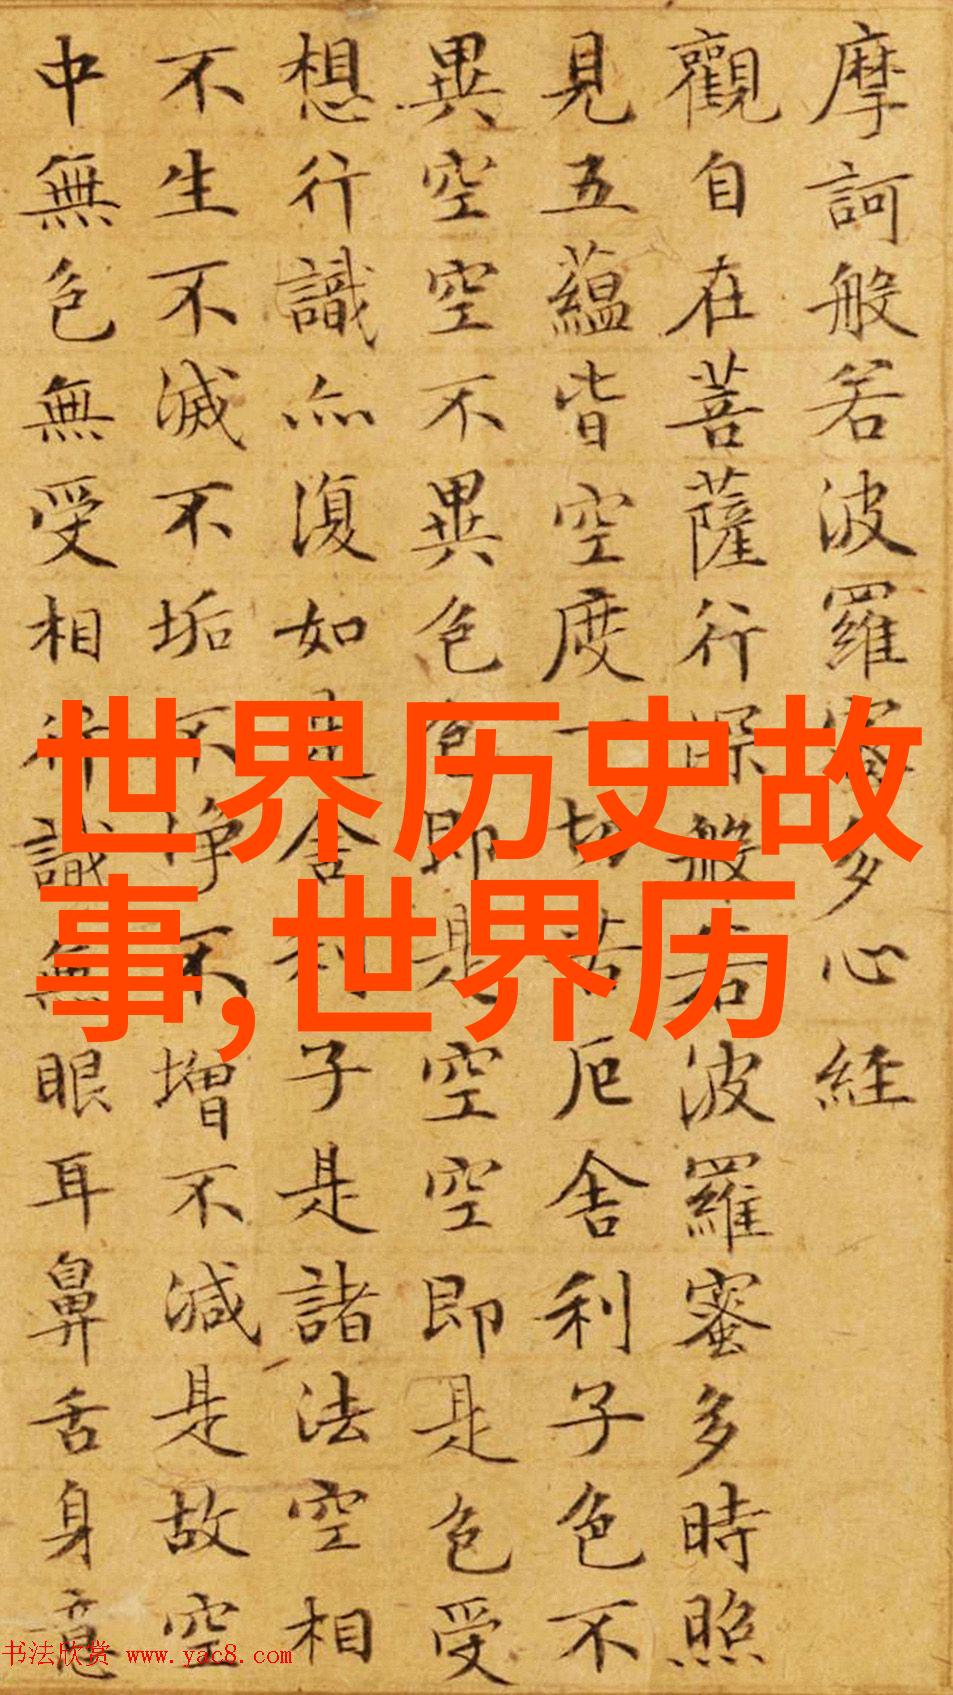 摩訶般若波羅蜜多心経
觀自在菩薩行深般若波羅蜜多時照
見五蘊皆空度一切苦厄舍利子色不
異空空不異色色即是空空即是色受
想行識亦復如是舍利子是諸法空相
不生不滅不垢不净不增不減是故空
中無色無受相行識無眼耳鼻舌身意
世界历史故
事,世界历
书法欣赏 www.yac8.com